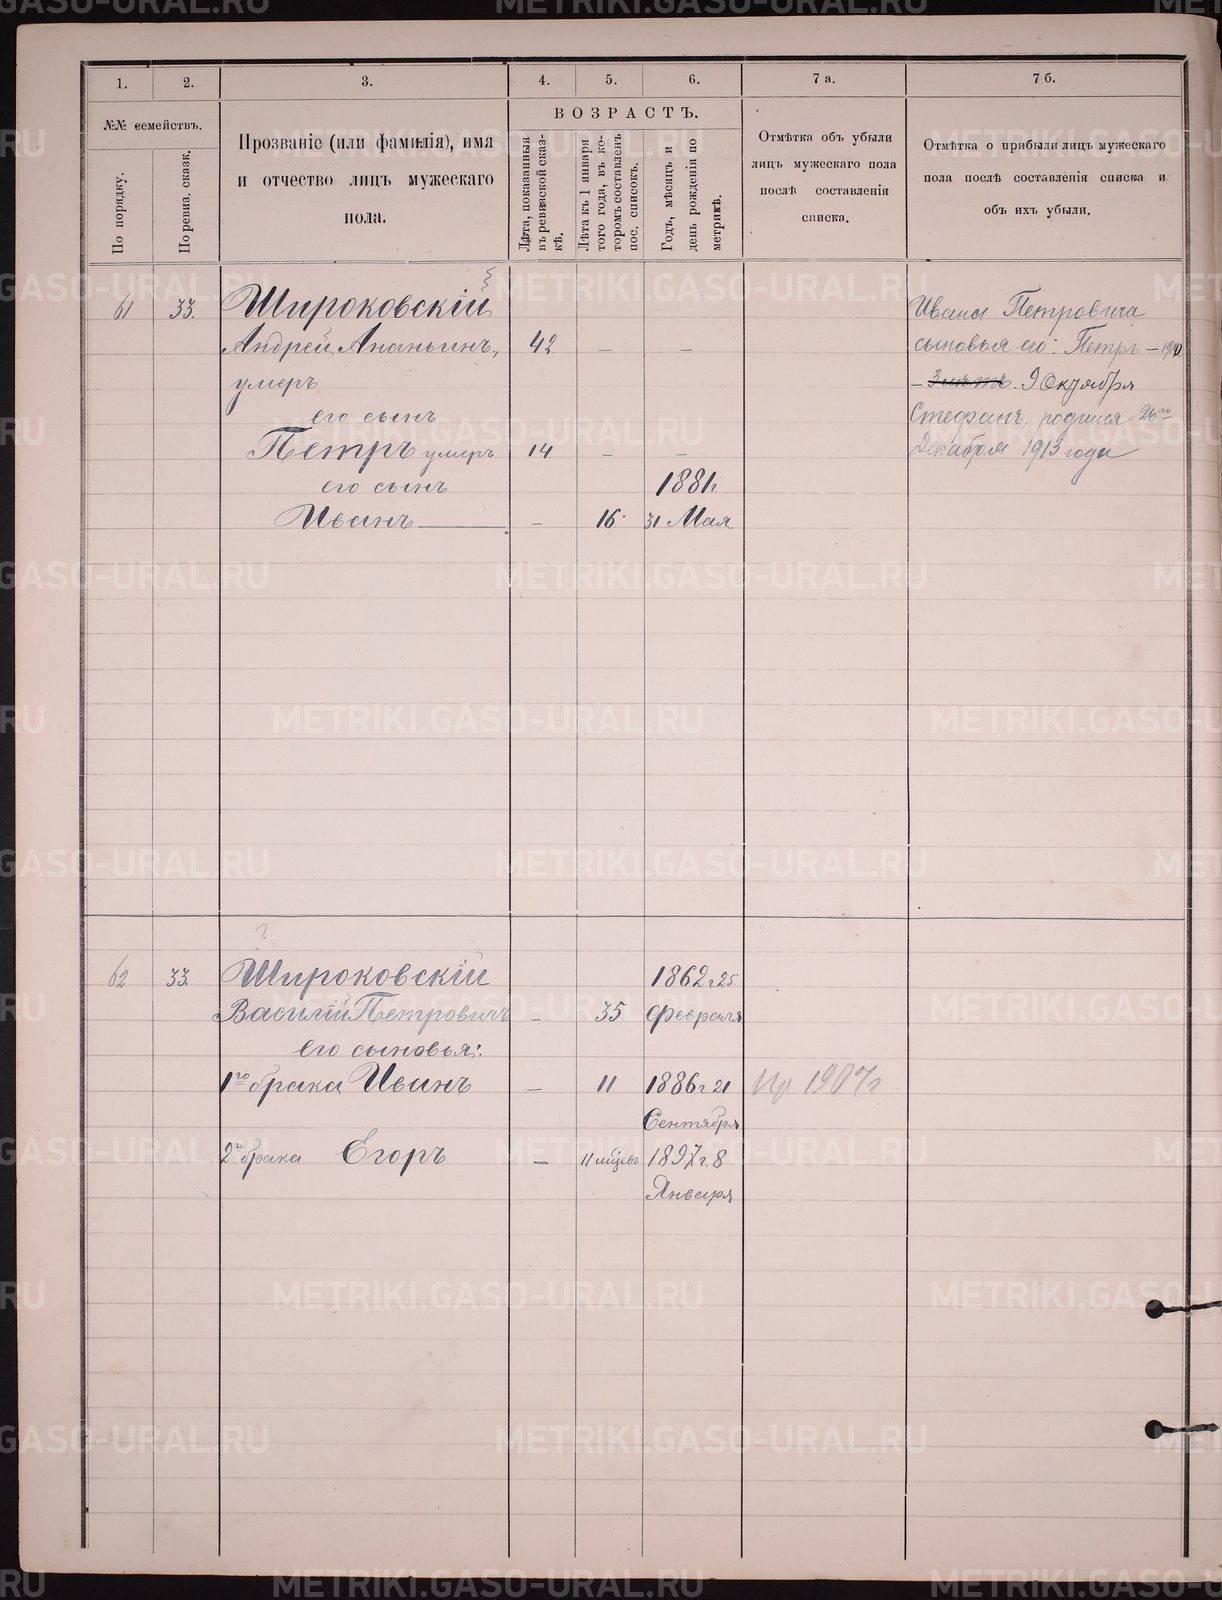 1. 2. 3. 4. 5. 6. 7 а. 7 б.
№№ семействъ.
По порядку.
По ревиз. сказк.
Прозваніе (или фамилія), имя
и отчество лицъ мужескаго
пола.
ВОЗРАСТЪ.
Лѣта, показанныя
въ ревизской сказ-
кѣ.
Лѣта къ 1 января
того года, въ ко-
торомъ составленъ
пос. списокъ.
Годъ, мѣсяцъ и
день рожденія по
метрикѣ.
Отмѣтка объ убыли
лицъ мужескаго пола
послѣ составленія
списка.
Отмѣтка о прибыли лицъ мужескаго
пола послѣ составленія списка и
объ ихъ убыли.
61 33. Широковскій
Андрей Ананьинъ, 42 — —
умеръ
его сынъ
Петръ умеръ 14 — —
его сынъ 1881 г.
Иванъ — — 16 31 Мая
Ивана Петровича
сыновья его: Петръ — 1910
— 9 Октября
Стефанъ, родился 26го
Декабря 1913 года
62 33. Широковскій 1862 г 25
Василій Петровичъ — 35 Февраля
его сыновья:
1го брака Иванъ — 11 1886 г 21 Пр 1907 г
Сентября
2й брака Егоръ — 11 мѣсевъ 1897 г. 8
Января
METRIKI.GASO-URAL.RU